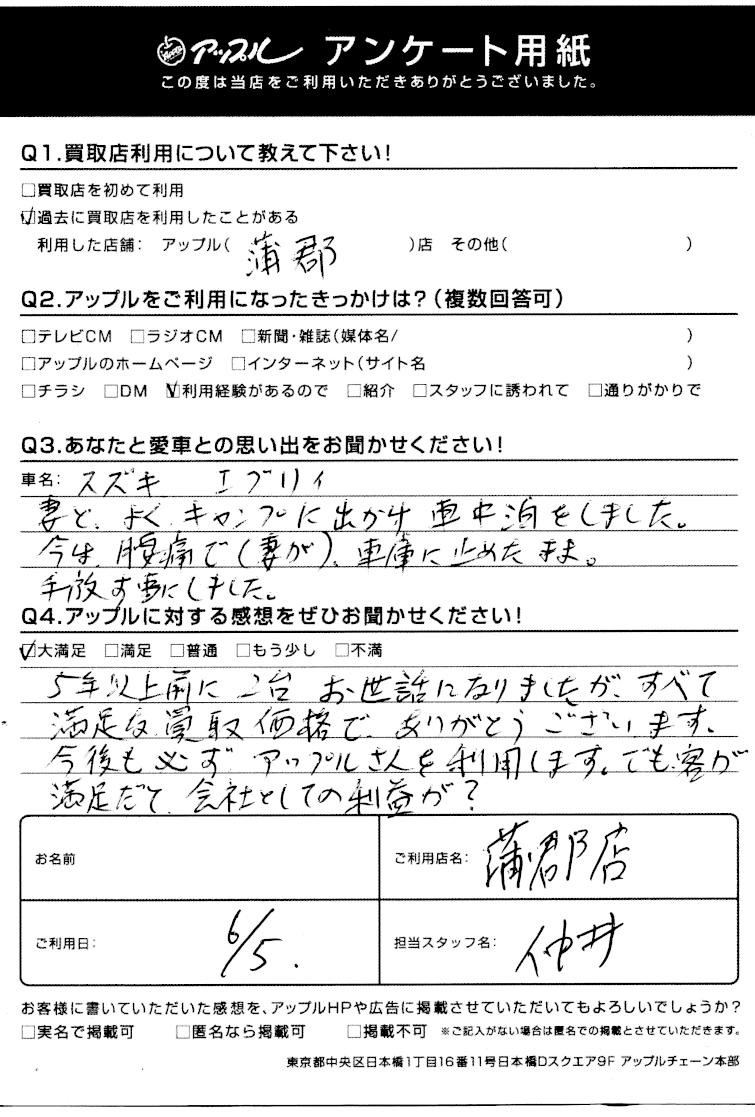 アップル アンケート用紙
この度は当店をご利用いただきありがとうございました。
Q1.買取店利用について教えて下さい!
□買取店を初めて利用
☑過去に買取店を利用したことがある
利用した店舗: アップル( 蒲郡 )店 その他( )
Q2.アップルをご利用になったきっかけは?(複数回答可)
□テレビCM □ラジオCM □新聞・雑誌(媒体名/ )
□アップルのホームページ □インターネット(サイト名 )
□チラシ □DM ☑利用経験があるので □紹介 □スタッフに誘われて □通りがかりで
Q3.あなたと愛車との思い出をお聞かせください!
車名: スズキ エブリィ
妻と、よく、キャンプに出かけ 車中泊をしました。
今は、腰痛で(妻が)、車庫に止めたまま。
手放す事にしました。
Q4.アップルに対する感想をぜひお聞かせください!
☑大満足 □満足 □普通 □もう少し □不満
5年以上前に 二台 お世話になりましたが、すべて
満足な買取価格で、ありがとうございます。
今後も必ず アップルさんを利用します。でも客が
満足だと、会社としての利益が?
お名前
ご利用店名: 蒲郡店
ご利用日: 6/5.
担当スタッフ名: 仲井
お客様に書いていただいた感想を、アップルHPや広告に掲載させていただいてもよろしいでしょうか?
□実名で掲載可 □匿名なら掲載可 □掲載不可 ※ご記入がない場合は匿名での掲載とさせていただきます。
東京都中央区日本橋1丁目16番11号日本橋Dスクエア9F アップルチェーン本部